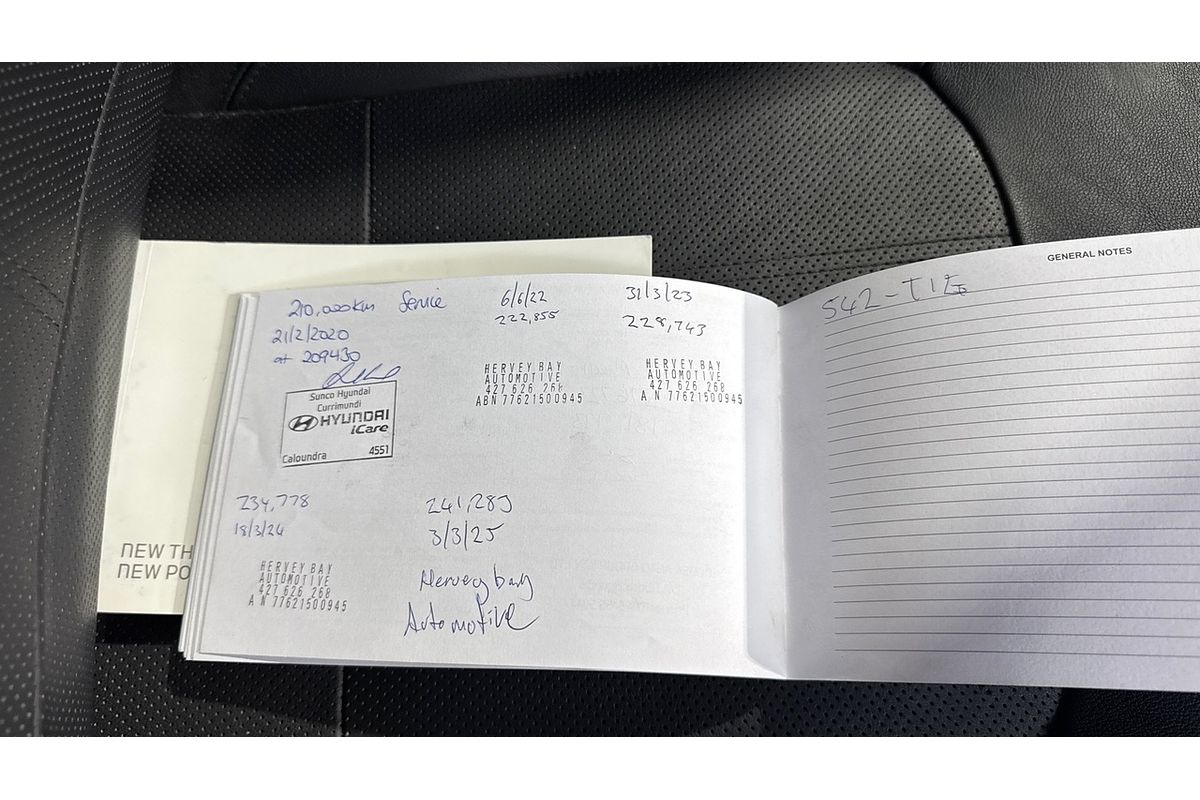 210,000km Service
21/2/2020
at 209430
Sunco Hyundai
Currimundi
HYUNDAI
iCare
Caloundra 4551
6/6/22
222,855
HERVEY BAY
AUTOMOTIVE
427 626 268
ABN 77621500945
31/3/23
228,743
HERVEY BAY
AUTOMOTIVE
427 626 268
A N 77621500945
234,778
18/3/24
HERVEY BAY
AUTOMOTIVE
427 626 268
A N 77621500945
241,285
3/3/25
Hervey bay
Automotive
NEW TH
NEW PO
GENERAL NOTES